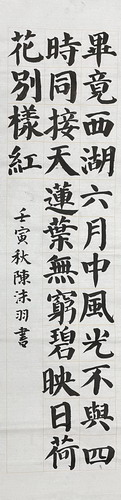 畢竟西湖六月中風光不與四
時同接天蓮葉無窮碧映日荷
花別樣紅
壬寅秋陳沫羽書